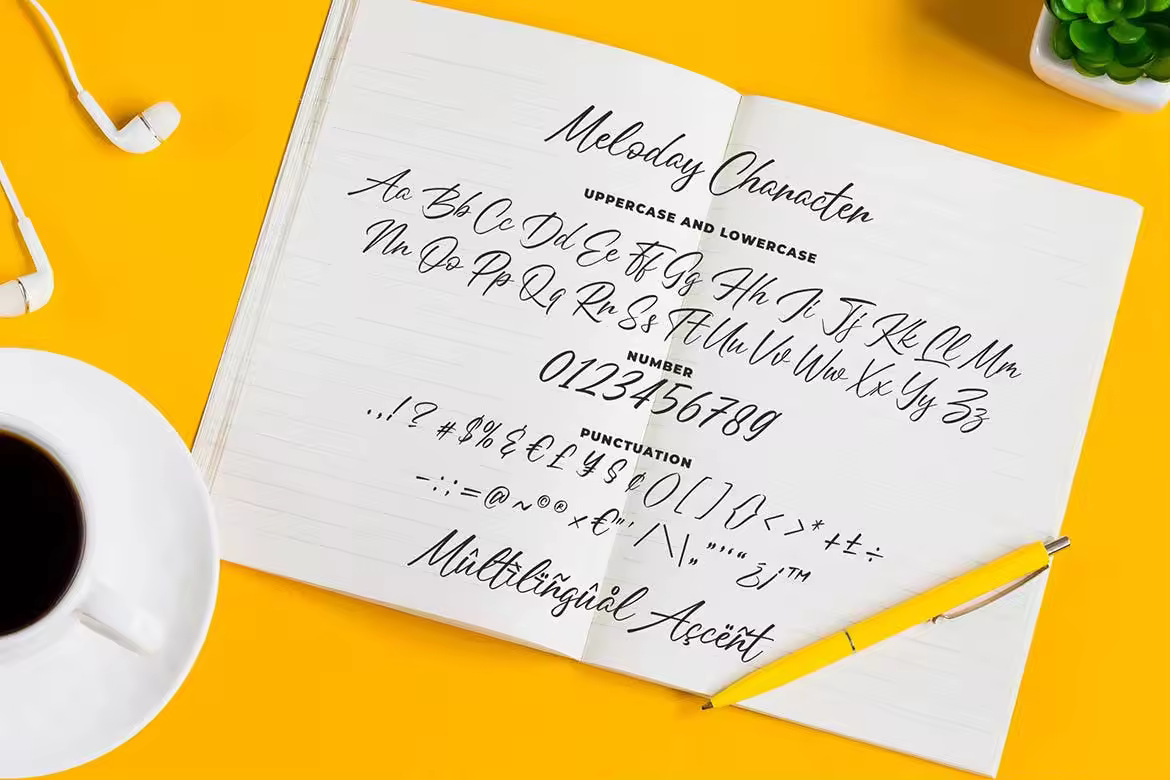 Meloday Character
UPPERCASE AND LOWERCASE
Aa Bb Cc Dd Ee Ff Gg Hh Ii Jj Kk Ll Mm
Nn Oo Pp Qq Rr Ss Tt Uu Vv Ww Xx Yy Zz
NUMBER
0123456789
PUNCTUATION
.,! ? # $ % & € £ ¥ § ¢ () [ ] {} < > * + ± ÷
- : ; = @ ~ © ® × € " ' / \ | „ " ' ' “ ¿ ¡ ™
Mûltïlïñgûål Àşcëñt